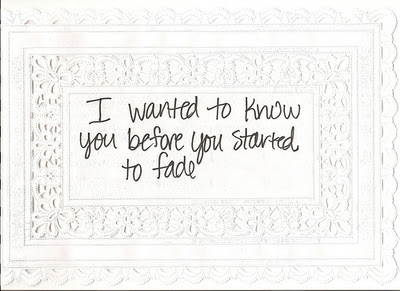 I wanted to know
you before you started
to fade